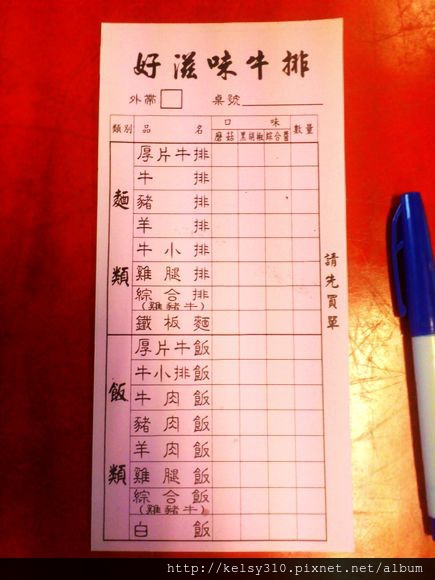 好滋味牛排
外帶 桌號
類別 品名 口味 數量
蘑菇 黑胡椒 綜合醬
麵類
厚片牛排
牛排
豬排
羊排
牛小排
雞腿排
綜合排
(雞豬牛)
鐵板麵
飯類
厚片牛飯
牛小排飯
牛肉飯
豬肉飯
羊肉飯
雞腿飯
綜合飯
(雞豬牛)
白飯
請先買單
http://kelsy310.pixnet.net/album